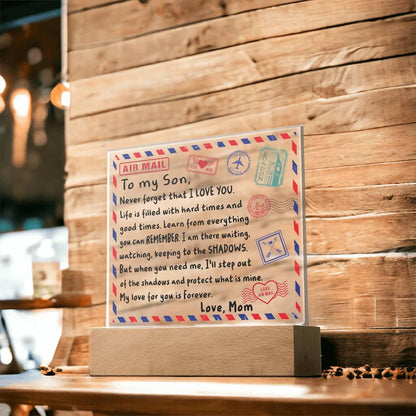 AIR MAIL
To my Son,
Never forget that I LOVE YOU.
Life is filled with hard times and
good times. Learn from everything
you can REMEMBER. I am there waiting,
watching, keeping to the SHADOWS.
But when you need me, I'll step out
of the shadows and protect what is mine.
My love for you is forever.
Love, Mom